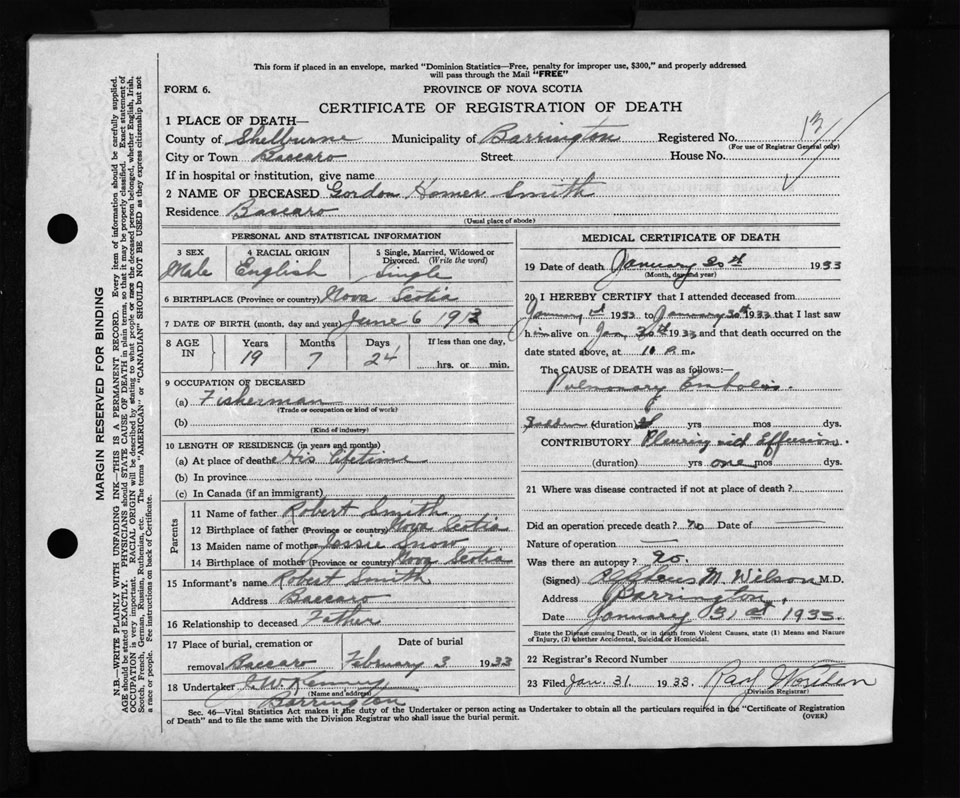 This form if placed in an envelope, marked "Dominion Statistics—Free, penalty for improper use, $300," and properly addressed
will pass through the Mail "FREE"
FORM 6.
PROVINCE OF NOVA SCOTIA
CERTIFICATE OF REGISTRATION OF DEATH
1 PLACE OF DEATH—
County of Shelburne Municipality of Barrington Registered No. 13
(For use of Registrar General only)
City or Town Baccaro Street House No.
If in hospital or institution, give name
2 NAME OF DECEASED Gordon Homer Smith
Residence Baccaro
(Usual place of abode)
PERSONAL AND STATISTICAL INFORMATION
3 SEX 4 RACIAL ORIGIN 5 Single, Married, Widowed or
Divorced. (Write the word)
Male English Single
6 BIRTHPLACE (Province or country) Nova Scotia
7 DATE OF BIRTH (month, day and year) June 6 1913
8 AGE IN Years Months Days If less than one day,
19 7 24 hrs. or min.
9 OCCUPATION OF DECEASED
(a) Fisherman
(Trade or occupation or kind of work)
(b)
(Kind of industry)
10 LENGTH OF RESIDENCE (in years and months)
(a) At place of death His lifetime
(b) In province
(c) In Canada (if an immigrant)
Parents
11 Name of father Robert Smith
12 Birthplace of father (Province or country) Nova Scotia
13 Maiden name of mother Jessie Snow
14 Birthplace of mother (Province or country) Nova Scotia
15 Informant's name Robert Smith
Address Baccaro
16 Relationship to deceased Father
17 Place of burial, cremation or Date of burial
removal Baccaro February 3 1933
18 Undertaker Kenney
(Name and address)
Barrington
MEDICAL CERTIFICATE OF DEATH
19 Date of death January 30th 1933
(Month, day and year)
20 I HEREBY CERTIFY that I attended deceased from
January 1933 to January 30th 1933 that I last saw
him alive on Jan 30th 1933 and that death occurred on
date stated above, at 10 P. m.
The CAUSE of DEATH was as follows:—
Pulmonary Embolis.
Sudden (duration) yrs mos dys.
CONTRIBUTORY Pleurisy with Effusion.
(duration) yrs one mos dys.
21 Where was disease contracted if not at place of death?
Did an operation precede death? No Date of —
Nature of operation —
Was there an autopsy? No.
(Signed) M. Wilson M.D.
Address Barrington.
Date January 31st 1933.
State the Disease causing Death, or in death from Violent Causes, state (1) Means and Nature
of Injury, (2) whether Accidental, Suicidal or Homicidal.
22 Registrar's Record Number
23 Filed Jan. 31. 1933. Ray
(Division Registrar)
Sec. 46—Vital Statistics Act makes it the duty of the Undertaker or person acting as Undertaker to obtain all the particulars required in the "Certificate of Registration
of Death" and to file the same with the Division Registrar who shall issue the burial permit.
(OVER)
MARGIN RESERVED FOR BINDING
N.B.—WRITE PLAINLY WITH UNFADING INK—THIS IS A PERMANENT RECORD. Every item of information should be carefully supplied.
AGE should be stated EXACTLY. PHYSICIANS should STATE CAUSE OF DEATH in plain terms, so that it may be properly classified. Exact statement of
OCCUPATION is very important. RACIAL ORIGIN will be described by stating to what people or race the deceased person belonged, whether English, Irish,
Scotch, French, German, Russian, Ruthenian, etc. The terms "AMERICAN" or "CANADIAN" SHOULD NOT BE USED as they express citizenship but not
a race or people. Fee instructions on back of Certificate.